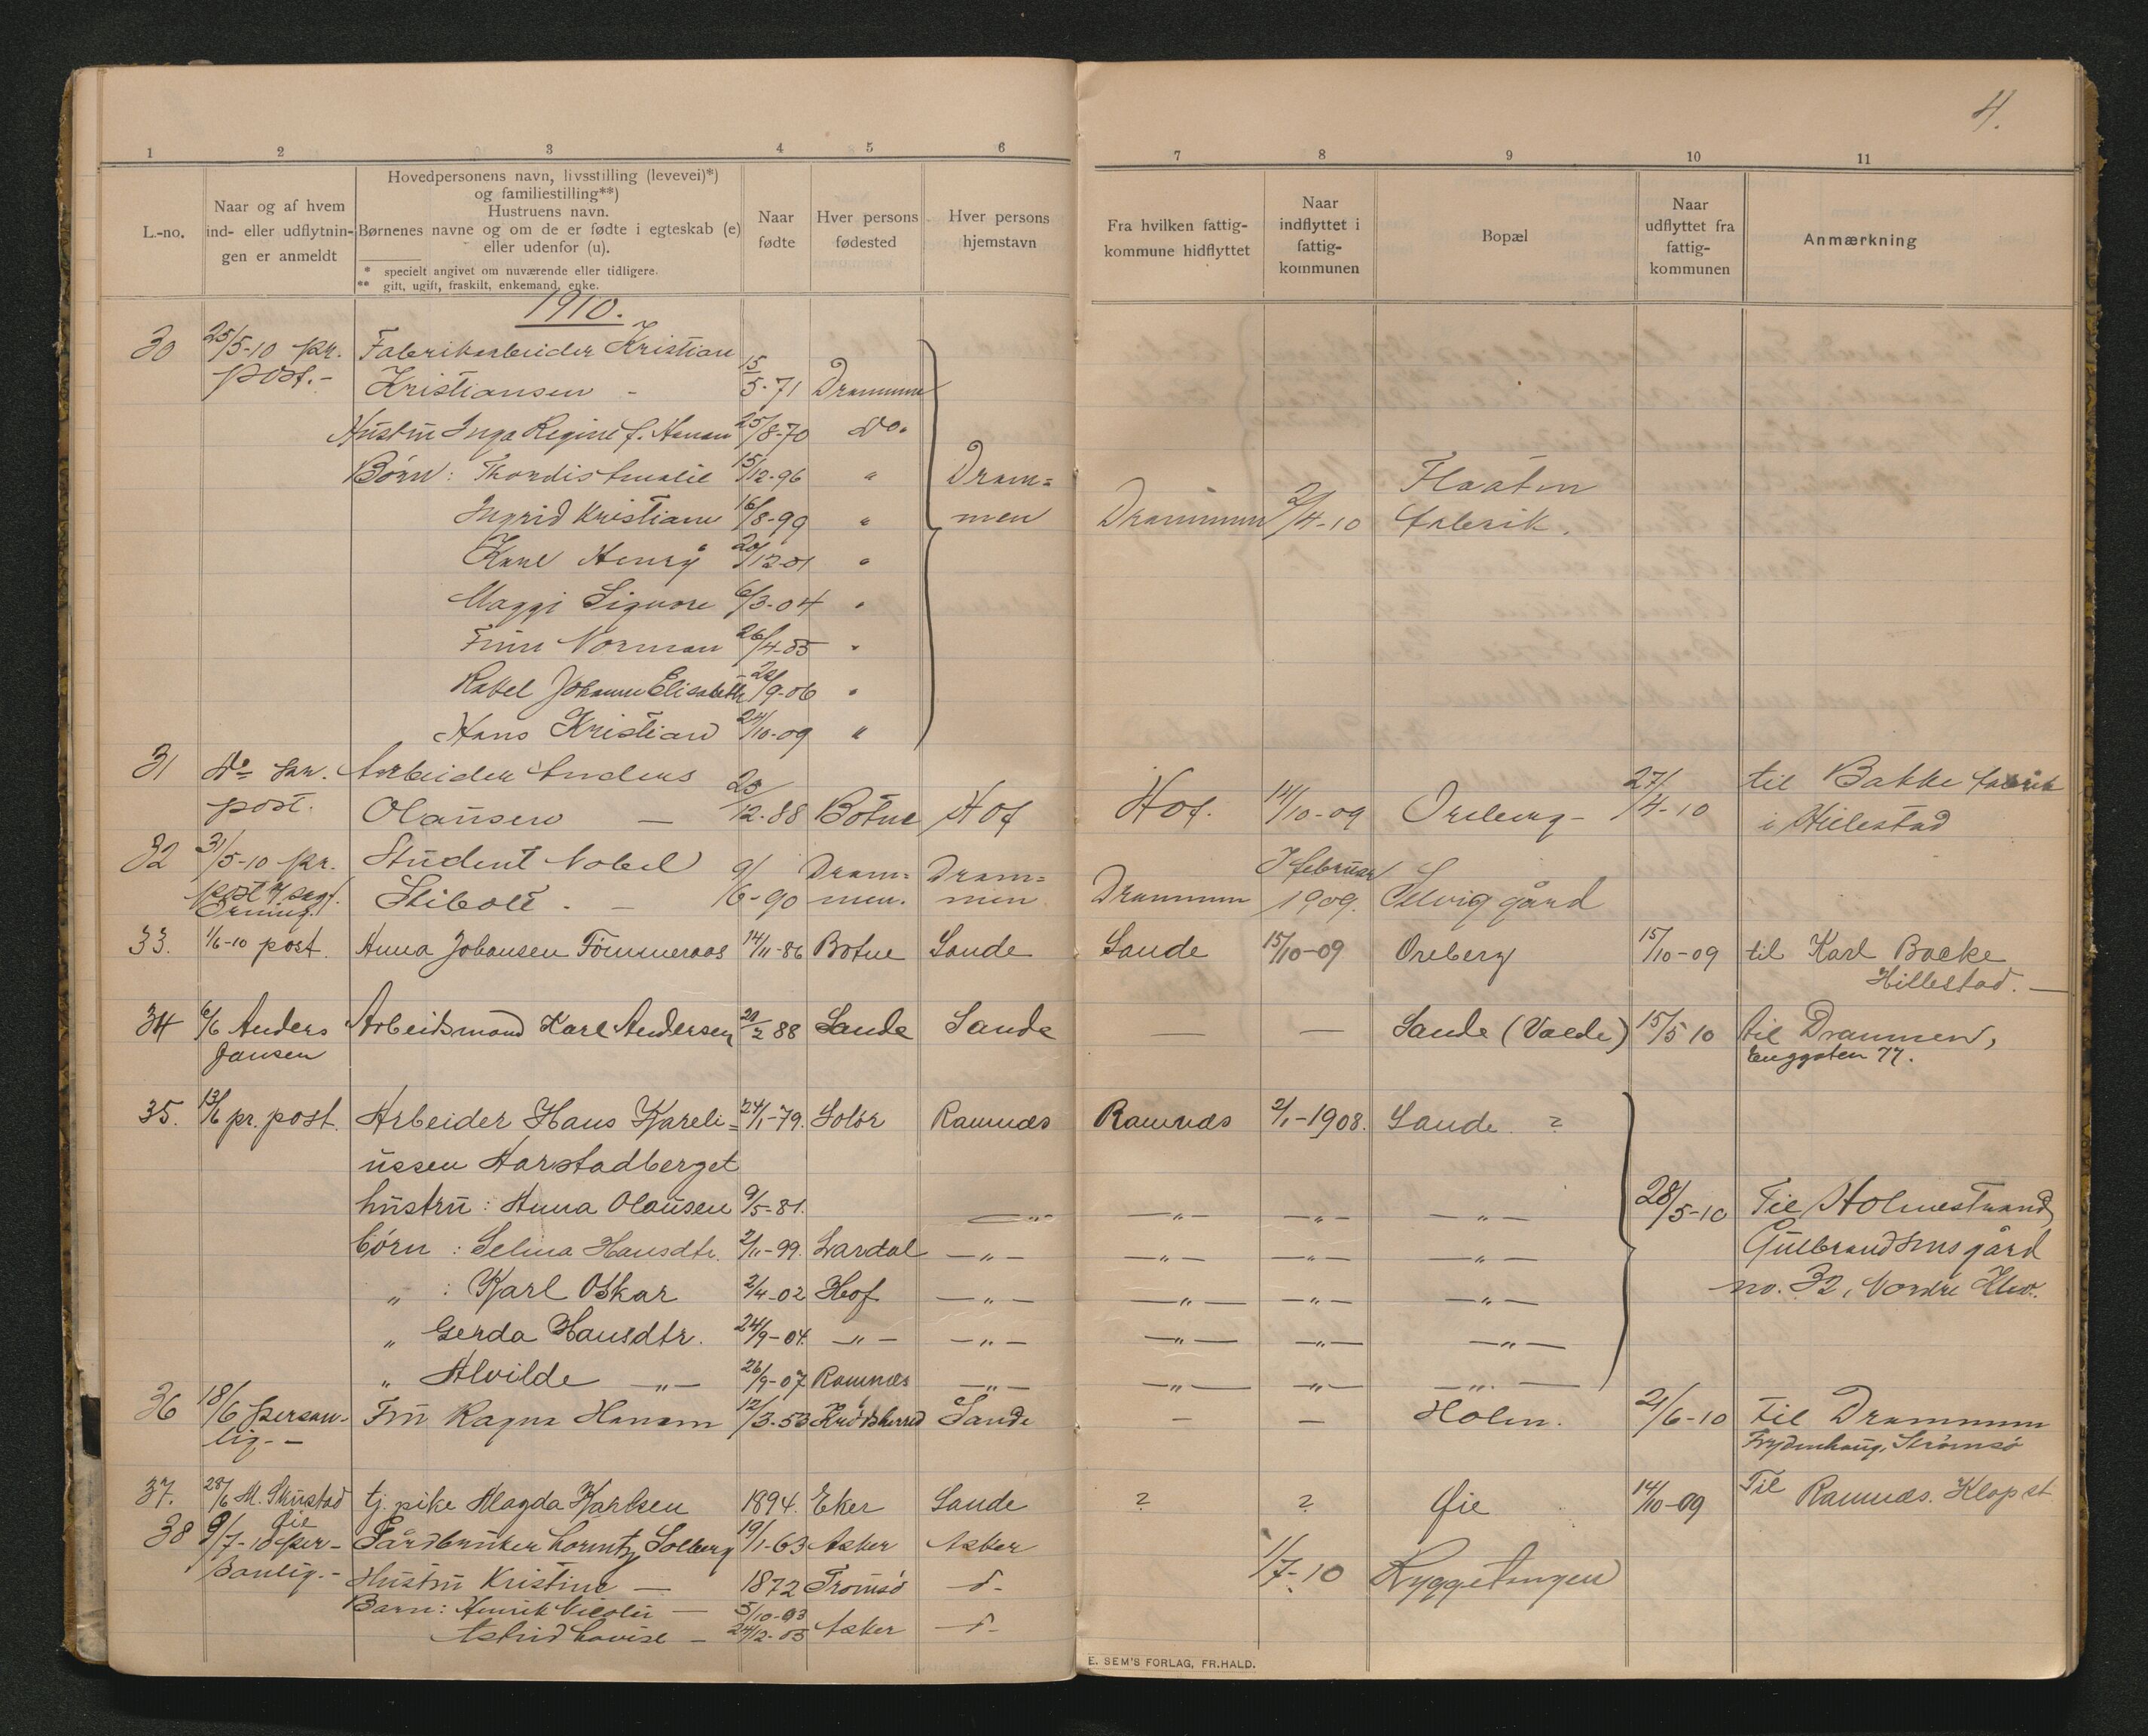 4.
1 2 3 4 5 6 7 8 9 10 11
L.-no.
Naar og af hvem
ind- eller udflytnin-
gen er anmeldt
Hovedpersonens navn, livsstilling (levevei)*)
og familiestilling**)
Hustruens navn.
Børnenes navne og om de er fødte i egteskab (e)
eller udenfor (u).
* specielt angivet om nuværende eller tidligere.
** gift, ugift, fraskilt, enkemand, enke.
Naar
fødte
Hver persons
fødested
Hver persons
hjemstavn
Fra hvilken fattig-
kommune hidflyttet
Naar
indflyttet i
fattig-
kommunen
Bopæl
Naar
udflyttet fra
fattig-
kommunen
Anmærkning
1910.
30 25/5-10 pr. Fabrikarbeider Kristian
post.- Kristiansen - 15/5-71 Drammen
Hustru Inga Regine f. Hansen 25/8-70 Do.
Børn: Thordis Amalie 15/12-96 " Dram=
Flaaten
Ingrid Kristiane 16/8-99 " men Drammen 2/4-10 fabrik.
Karl Henry 20/12-01 "
Maggi Signore 6/3-04 "
Finn Norman 26/4-05 "
Rakel Johanne Elisabeth 20/9-06 "
Hans Kristian 24/10-09 "
31 Do pr. Arbeider Anders 27/ til Bakke fabrik
post. Olausen — 20/12-88 Botne Hof Hof. 14/10-09 Oreberg - 4-10 i Hillestad
32 31/5-10 pr. Student Nobel 9/ Dram= Dram= I februar
post Stibolt. - 6-90 men. men Drammen 1909. Selvig gård
33. 1/6-10 post. Anna Johansen Tømmeraas 14/11-86 Botne Sande Sande 15/10-09 Oreberg 15/10-09 til Karl Backe
Hillestad. —
34 6/6 Anders Arbeidsmand Karl Andersen 20/2 88 Sande Sande — — Sande (Valde) 15/5 10 til Drammen,
Jansen Enggaten 77.
35. 13/6 pr. post. Arbeider Hans Kareli= 24/1-79. Solør Ramnæs Ramnæs 2/1-1908. Sande ?
ussen Harstadberget
hustru: Anna Olausen 9/5-81. —"— —"— —"— —"— 28/5-10 Til Holmestrand,
børn: Selma Hansdtr. 2/11-99. Lardal —"— —"— —"— —"— Gulbrandsens gård
" : Karl Oskar 2/4-02 Hof —"— —"— —"— —"— no. 32, Nordre Elw.
" Gerda Hansdtr. 24/9-04. —"— —"— —"— —"— —"—
" Alvilde —"— 26/9-07 Ramnæs —"— —"— —"— —"—
36 18/6 person- Fru Ragna Hansen 12/3-53 Krødsherred Sande — — Holm. 21/6-10 til Drammen
lig.- Frydenhaug, Strømsø
37. 28/6 M. Skustad tj. pike Magda Karlsen 1894. Eker Sande ? ? Øie 14/10-09 Til Ramnæs. Klopst
Øie
38 9/7-10 per- Gårdbruker Lorentz Solberg 19/1-63 Asker Asker
sonlig.- Hustru Kristine — 1872 Tromsø d- 1/7-10 Ryggetangen
Barn: Henrik Nicolai — 5/10-03
Astrid Lovise — 24/12-05 Asker d-
E. SEM'S FORLAG, FR.HALD.